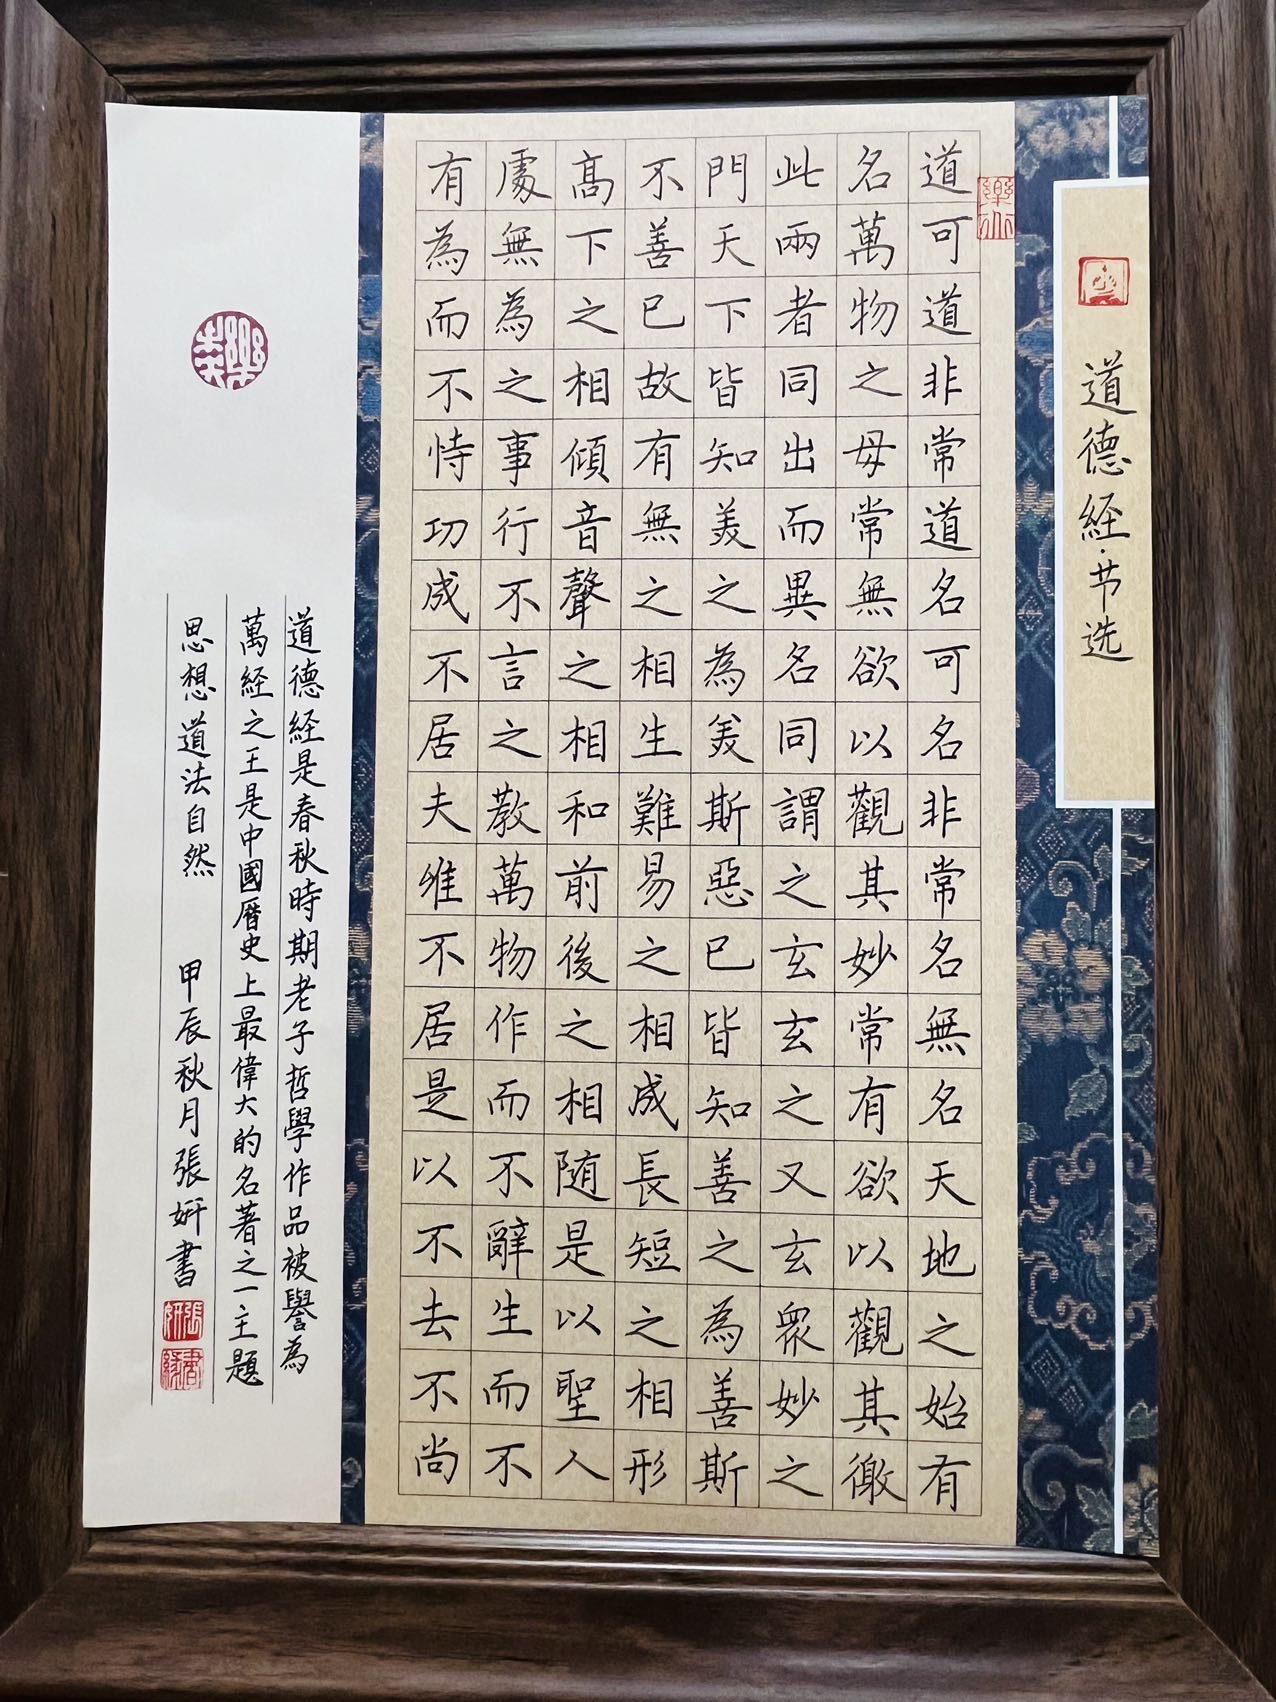 道德経·节选
道可道非常道名可名非常名無名天地之始有
名萬物之母常無欲以觀其妙常有欲以觀其徼
此兩者同出而異名同謂之玄玄之又玄衆妙之
門天下皆知美之為美斯惡已皆知善之為善斯
不善已故有無之相生難易之相成長短之相形
高下之相傾音聲之相和前後之相随是以聖人
處無為之事行不言之教萬物作而不辭生而不
有為而不恃功成不居夫唯不居是以不去不尚
道德経是春秋時期老子哲學作品被譽為
萬経之王是中國曆史上最偉大的名著之一主題
思想道法自然 甲辰秋月張妍書